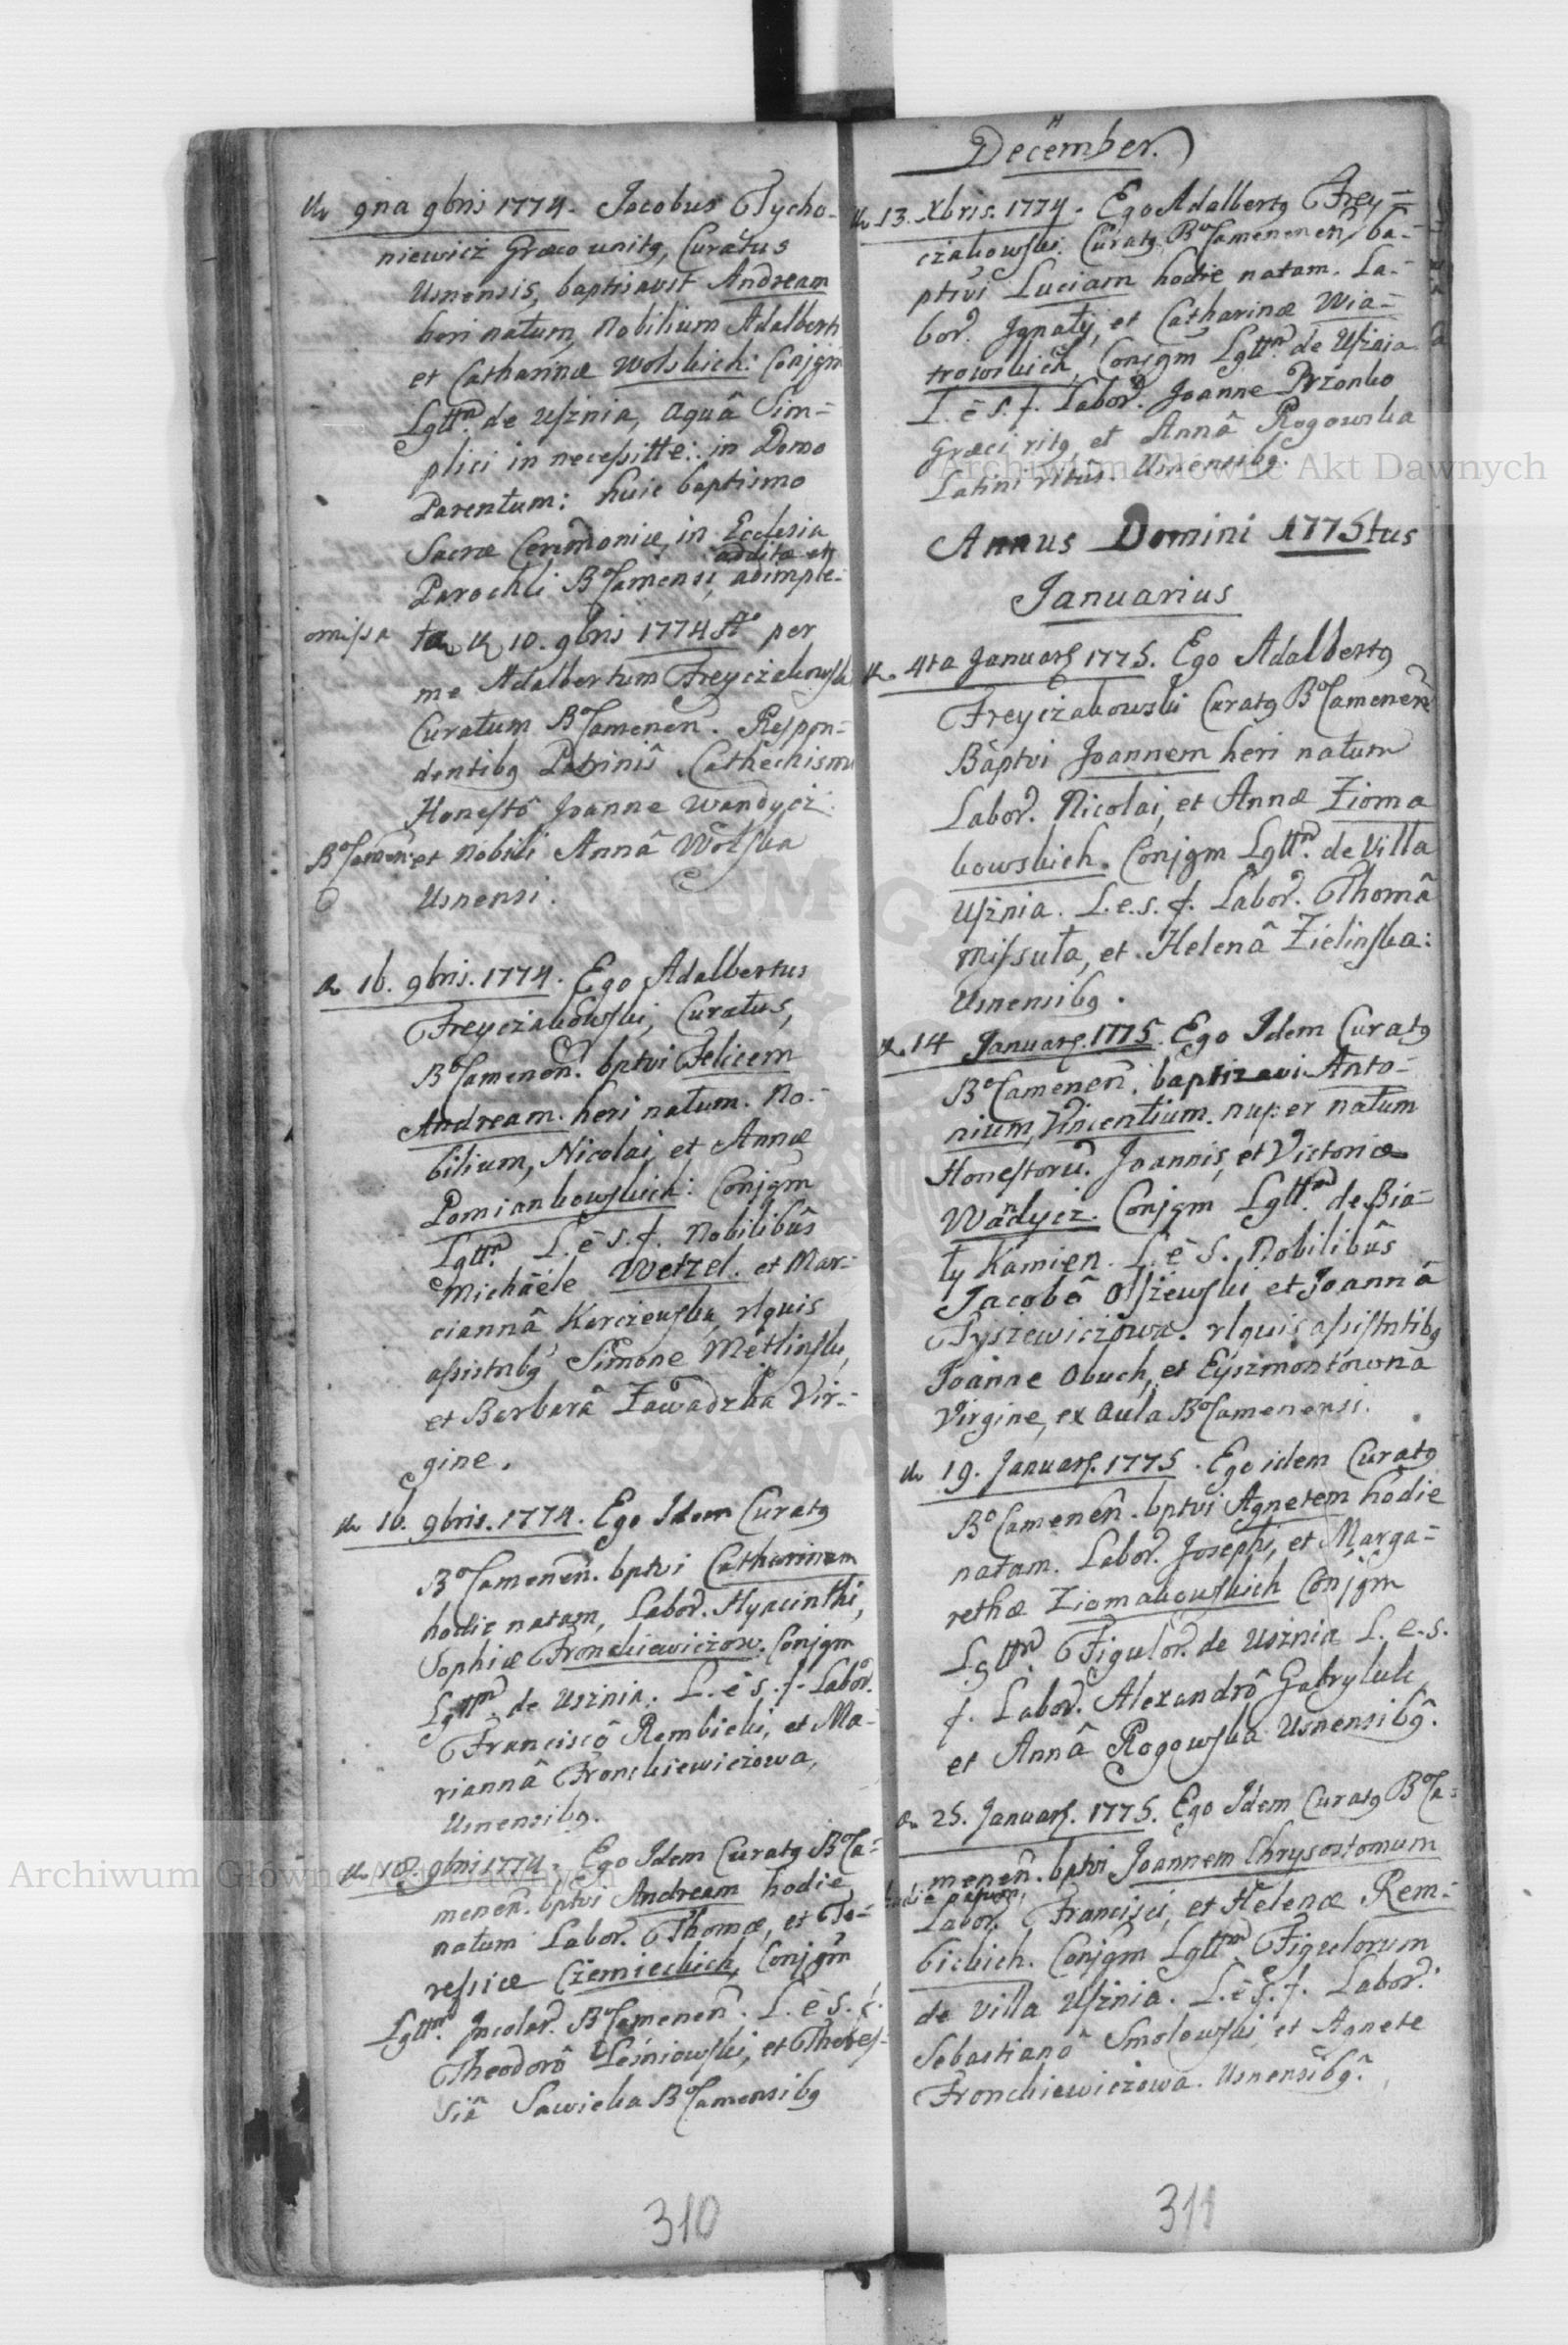 9na 9bris 1774. Jacobus Tycho-
niewicz Græco unitg, Curatus
Usnensis, baptisavit Andream
heri natum, Nobilium Adalberti
et Catharinæ Wolskich: Conjgm
Lgttm. de Usznia, aquâ Sim=
plici in necessitte: in Domo
Parentum: huic baptismo
Sacræ Ceremoniæ, in Ecclesia
additæ et
Parochli BoCamensi, adimple-
omissa
ta 10. 9bris 1774 per
me Adalbertum Freyczakowski
Curatum BoCamenen. Respon-
dentibg Patrinis Cathechismo
Honestô Joanne Wandycz
BoCamen: et Nobili Annâ Wolska
Usnensi.
16. 9bris. 1774. Ego Adalbertus
Freyczakowski, Curatus,
BoCamenen. bptvi Felicem
Andream. heri natum. No-
bilium, Nicolai, et Annæ
Pomiankowskich: Conjgm
Lgttm. L. e S. f. Nobilibus
Michäele Wetzel. et Mar-
ciannâ Karczewska, rlquis
assistnbg Simone Metlinski,
et Barbarâ Zawadzka Vir-
gine.
16. 9bris. 1774. Ego Idem Curatg
BoCamenen. bptvi Catharinam
hodie natam, Labor. Hyacinthi,
Sophiæ Fronckiewiczow. Conjgm
Lgttm. de Usznia. L. e S. f. Labor.
Franciscô Rembicki, et Ma-
riannâ Fronckiewiczowa,
Usnensibg.
18. 9bris 1774. Ego Idem Curatg BoCa=
menen. bptvi Andream hodie
natum Labor. Thomæ, et Te-
ressiæ Czemieckich, Conjgm
Lgttm. Incolar. BoCamenen. L. e S. f.
Theodorô Lesniowski, et Theres-
siâ Sawicka BoCamensibg
310
December.
13. Xbris. 1774. Ego Adalbertg Frey=
czakowski. Curatg BoCamenen. ba-
ptivi Luciam hodie natam. La-
bor. Ignatij, et Catharinæ Wia-
trowskich, Conjgm Lgttm. de Usznia
L. e S. f. Labor. Joanne Przonko
Græci ritg et Annâ Rogowska
Latini ritus. Usnensibg.
Annus Domini 1775tus
Januarius
4ta Januarj 1775. Ego Adalbertg
Freyczakowski Curatg BoCamenen
Baptvi Joannem heri natum
Labor. Nicolai, et Annæ Zioma
kowskich. Conjgm Lgttm. de Villa
Usznia. L. e. s. f. Labor. Thomâ
Missuła, et Helenâ Zielinska:
Usnensibg.
14 Januarj. 1775. Ego Idem Curatg
BoCamenen. baptizavi Anto-
nium, Vincentium. nuper natum
Honestoru. Joannis, et Victoriæ
Wandycz. Conjgm Lgttm. de Bia-
ły Kamien. L. e S. Nobilibus
Jacobô Olszewski et Joannâ
Tyszewiczowa. rlquis assistntibg
Joanne Obuch, et Eyszmontowna
Virgine, ex Aula BoCamenensi.
19. Januarj. 1775. Ego idem Curatg
BoCamenen. bptvi Agnetem hodie
natam. Labor. Josephi, et Marga-
rethæ Ziomakowskich Conjgm
Lgttm. Figulor. de Usznia L. e. S.
f. Labor. Alexandrô Gabryluk
et Annâ Rogowska Usnensibg.
25. Januarj. 1775. Ego Idem Curatg BoCa=
menen. bptvi Joannem Chrysostomum
hodie natum,
Labor. Francisci, et Helenæ Rem-
bickich. Conjgm Lgttm. Figulorum
de Villa Usznia. L. e S. f. Labor.
Sebastianô Smolewski et Agnete
Fronckiewiczowa. Usnensibg.
311
Archiwum Główne Akt Dawnych
Archiwum Główne Akt Dawnych